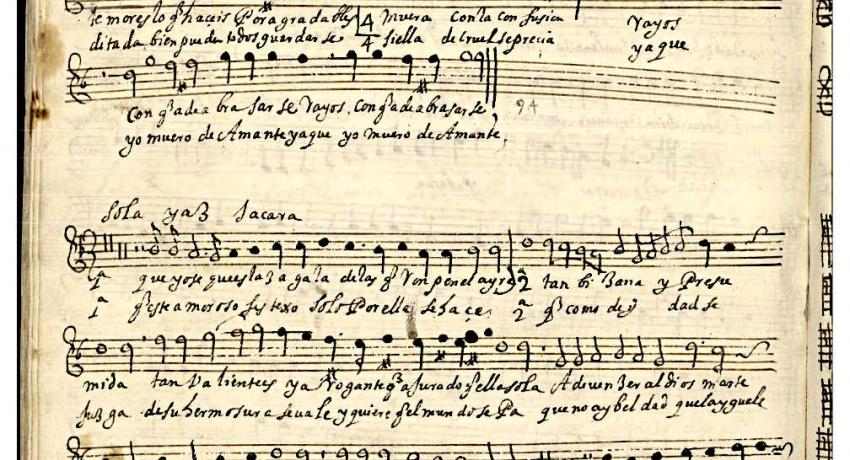 te moreslo q̃ haceis Por agradables 4 muera Con la confusion Rayos
ditada bien pueden todos guardarse 4 siella de cruel se precia ya que
Con q̃ ade abrasarse Rayos. Con q̃ ade abrasarse
yo muero de Amante ya que yo muero de Amante,
94
Sola ya 3 Jacara
1ª que yo se que es la Zagala de las q̃ Ron pen el ayre 2ª tan biZana y Presu
1ª q̃ este amoroso festexo solo Por ella se hace, 2ª q̃ como de dad se
mida tan Valientes ya Rogante q̃ a jurado q̃ ella sola A de venZer al dios marte
juZga de su hermosura se vale y quiere q̃ el mundo se Pa que no ay beldad que la yguale